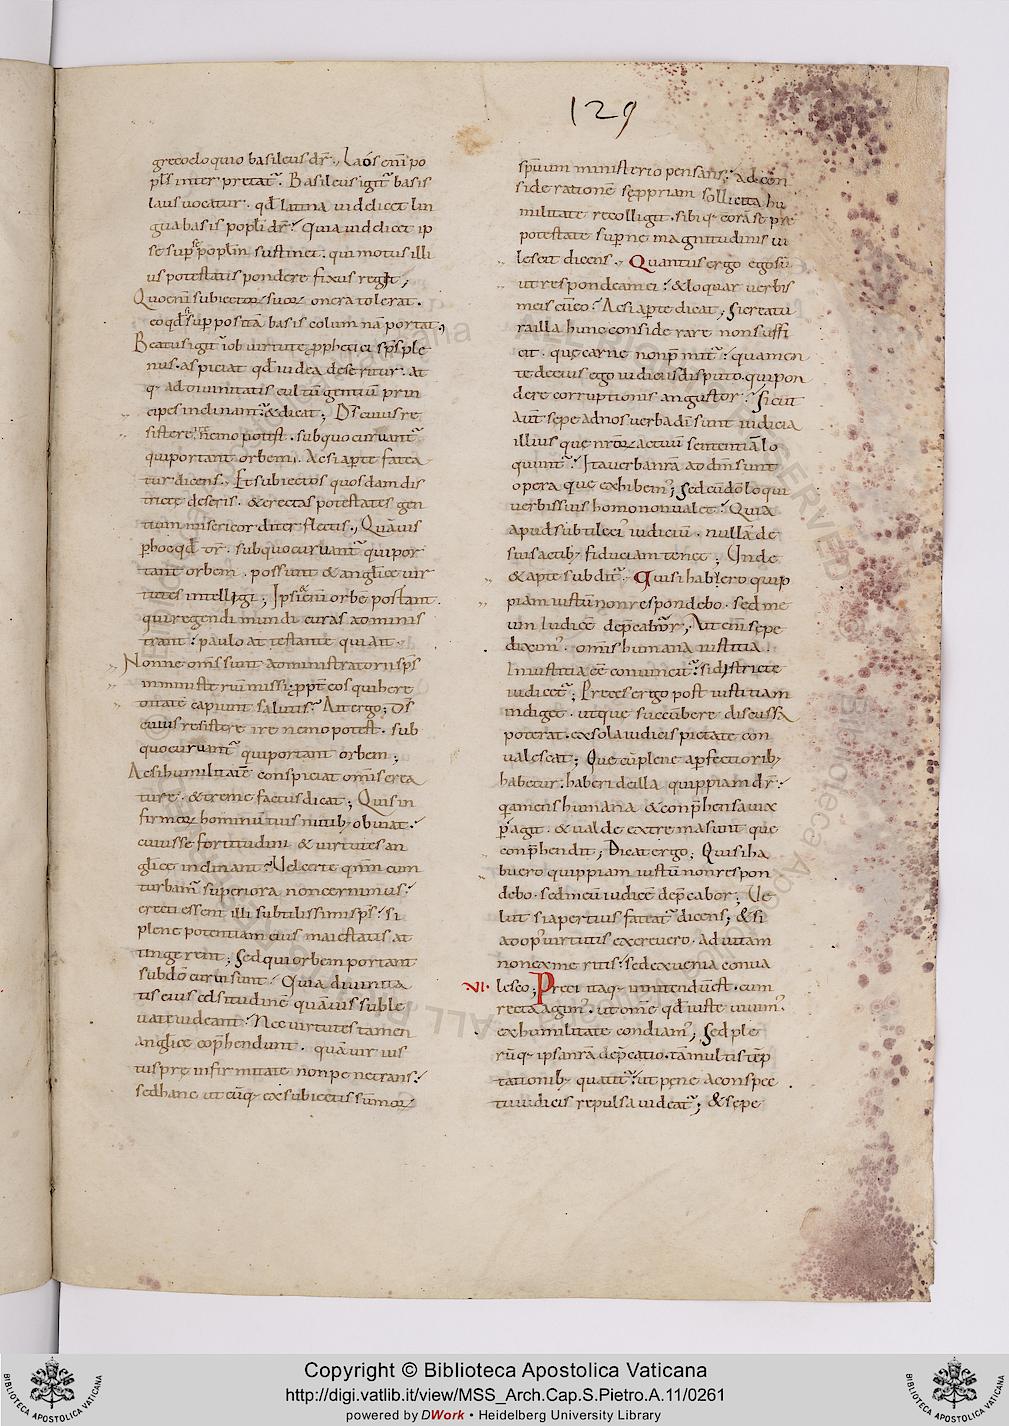 129
greco eloquio basileus dr̄. Laós enī po
pl̄s interpretat᷑. Basileus igit᷑ basis
laus uocatur. qđ latina uidelicet lin
gua basis popli dr̄. Quia uidelicet ip
se sup se poplm̄ sustinet. qui motus illi
us potestatis pondere fixus regit;
Quo enī subiectoꝝ suoꝝ onera tolerat.
eo qđ a sup posita basis columna portat,
Beatus igit᷑ iob uirtute pphetici sp̄s ple
nus. aspiciat qđ iudea deseritur. at
q· ad diuinitatis cultū gentiū prin
cipes inclinant᷑. & dicat; Dš cuius re
sistere ire nemo potest. sub quo curuant᷑
qui portant orbem. Ac si apte fatea
tur dicens. Et subiectos quosdam dis
tricte deseris. & erectas potestates gen
tium misericorditer flectis. Quāuis
p hoc qđ dr̄. sub quo curuant᷑ qui por
tant orbem. possunt & anglicę uir
tutes intellegi; Ipsi enī orbē portant.
qui regendi mundi curas adminis
trant. paulo attestante qui ait.
Nonne om̄s sunt administratorii sp̄s
in ministeriū missi. ppt̄ eos qui here
ditatē capiunt salutis. Ait ergo; Dš
cuius resistere ire nemo potest. sub
quo curuant᷑ qui portant orbem;
Ac si humilitatē conspiciat om̄is crea
turę. & tremefactus dicat; Quis in
firmoꝝ hominū tuis nutib; obuiat.
cuius se fortitudini & uirtutes an
glicę inclinant. Uel certe qm̄ cum
curbam᷑ superiora non cernimus.
erecti essent illi subtilissimi sp̄s. si
plene potentiam eius maiestatis at
tingerent; Sed qui orbem portant
sub dō curui sunt. Quia diuinita
tis eius celsitudinē quāuis suble
uati uideant. Nec uirtutes tamen
anglicę cōp̄hendunt. quā uir ius
tus pre infirmitate non penetrans.
sed hanc utcūq· ex subiectis sūmoꝝ
sp̄uum ministerio pensans; ad con
siderationē se ppriam sollicita hu
militate recolligit. sibi q· corā se pre
potestate supne magnitudinis ui
lescit dicens. Quantus ergo ego sū
ut respondeam ei. & loquar uerbis
meis cū eo. Ac si apte dicat, si creatu
ra illa hunc considerare non suffi
cit. que carne non p̄mit᷑. qua men
te de eius ego iudiciis disputo. qui pon
dere corruptionis angustor. Sicut
aut̄ sepe ad nos uerba dī sunt iudicia
illius que nr̄oꝝ actuū sententiā lo
quunt᷑. Ita uerba nr̄a ad dm̄ sunt
opera que exhibem᷒; Sed cū dō loqui
uerbis suis homo non ualet. Quia
apud subtile ei᷒ iudiciū. nullā de
suis actib; fiduciam tenet; Unde
& apte subdit᷑. Qui si habuero quip
piam iustū non respondebo. sed me
um iudicē dep̄cabor; Ut enī sepe
dixim᷒. omīs humana iustitia.
iniustitia eē conuincit᷑. si districte
iudicet᷑; Prece ergo post iustitiam
indiget. ut que succūbere discussa
poterat. ex sola iudicis pietate con
ualescat; Que cū plene a p̄fectiorib;
habetur. haberi de illa quippiam dr̄.
q̄a mens humana & conp̄hensa uix
p̄agit. & ualde extrema sunt que
conp̄hendit; Dicat ergo; Qui si ha
buero quippiam iustū non respon
debo. sed meū iudicē dep̄cabor; Ue
lut si apertius fateat᷑ dicens; & si
ad op᷒ uirtutis excreuero. ad uitam
non ex meritis. sed ex uenia conua
VI. lesco; Preci itaq· innitendū est. cum
recta agim᷒. ut om̄e qđ iuste uiuim᷒.
ex humilitate condiam᷒; Sed ple
rūq· ipsa nr̄a dep̄catio. tā multis tēp
tationib; quatit᷑. ut pene a conspec
tu iudicis repulsa uideat᷑; & sepe
Copyright © Biblioteca Apostolica Vaticana
http://digi.vatlib.it/view/MSS_Arch.Cap.S.Pietro.A.11/0261
powered by DWork • Heidelberg University Library
BIBLIOTECA APOSTOLICA VATICANA
BIBLIOTECA APOSTOLICA VATICANA